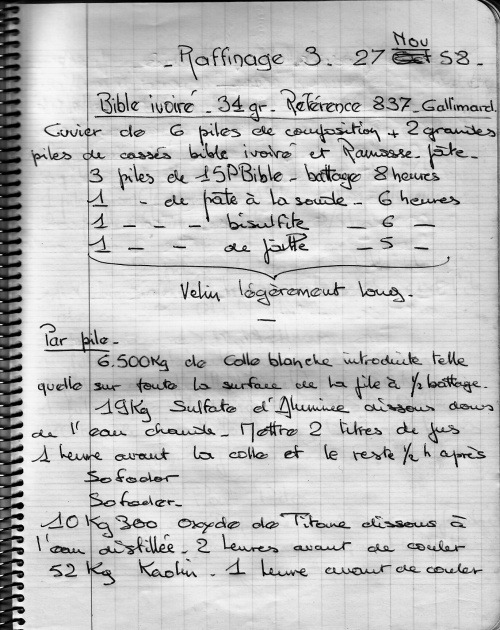 - Raffinage 3. 27 Nov 58 -
Bible ivoiré - 34 gr. Référence 837. Gallimard.
Cuvier de 6 piles de composition + 2 grandes
piles de cassés bible ivoiré et Ramasse-pâte -
3 piles de 1SPBible - battage 8 heures
1 - de pâte à la soude - 6 heures
1 - - - bisulfite - 6 -
1 - - de - 5 -
Velin légèrement long.
Par pile -
6.500Kg de Colle blanche introduite telle
quelle sur toute la surface de la pile à 1/2 battage.
19Kg Sulfate d'Alumine dissous dans
de l'eau chaude - Mettre 2 litres de jus
1 heure avant la colle et le reste 1/2 h après
Sofador
Sofader -
10 Kg 300 Oxyde de Titane dissous à
l'eau distillée - 2 heures avant de couler
52 Kg Kaolin - 1 heure avant de couler